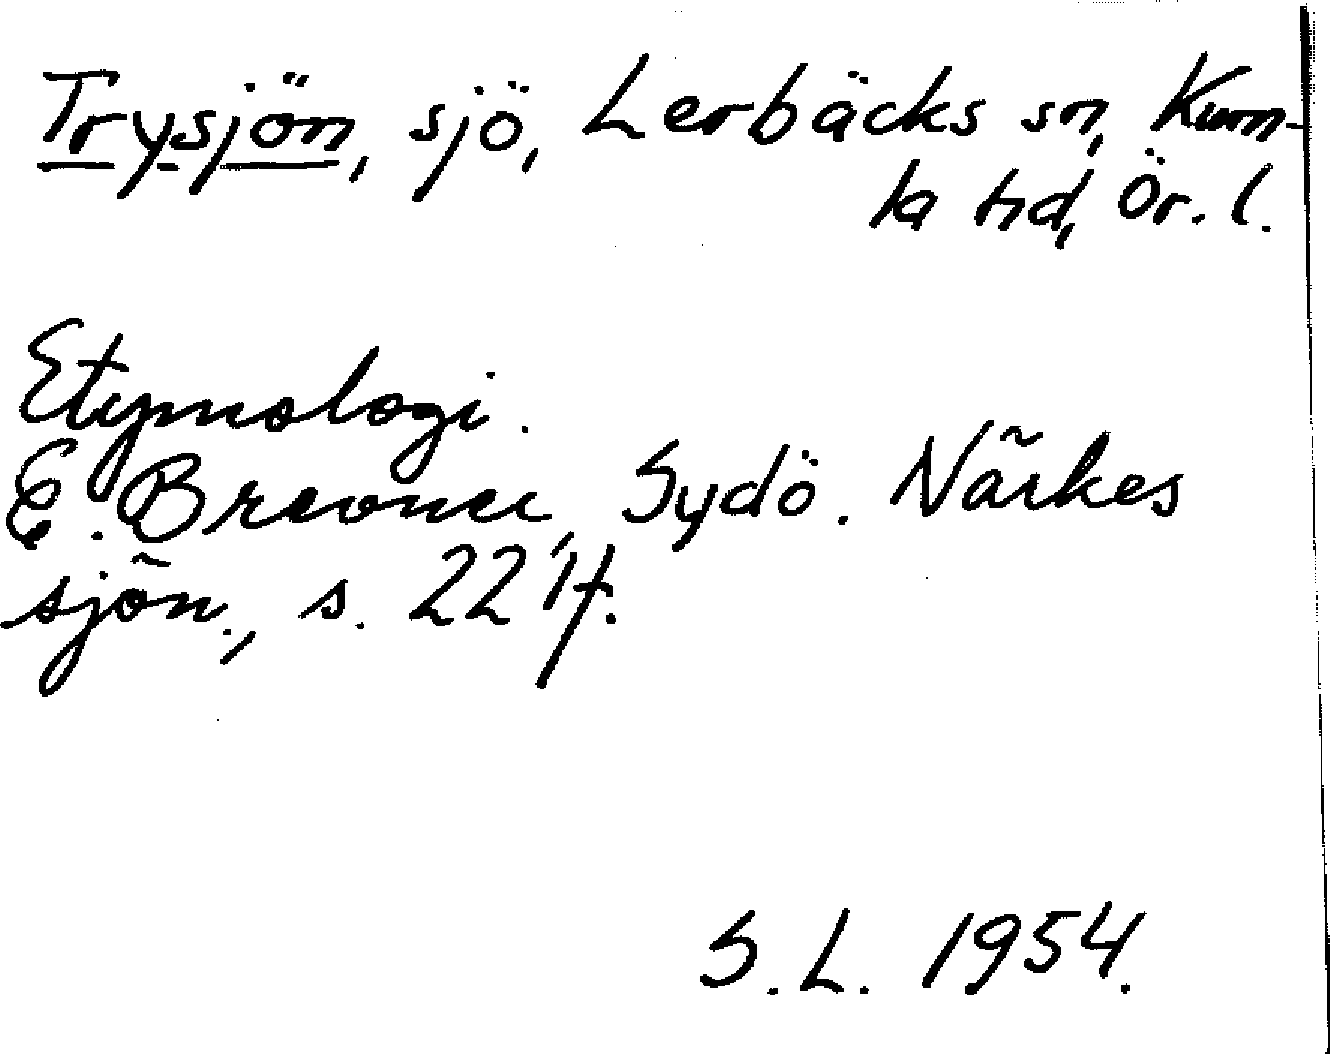 Trysjön, sjö, Lerbäcks sn, Kum-
la hd, Ör. l.
Etymologi.
E. Brevner, Sydö. Närkes
sjön., s. 22 ff.
S.L. 1954.